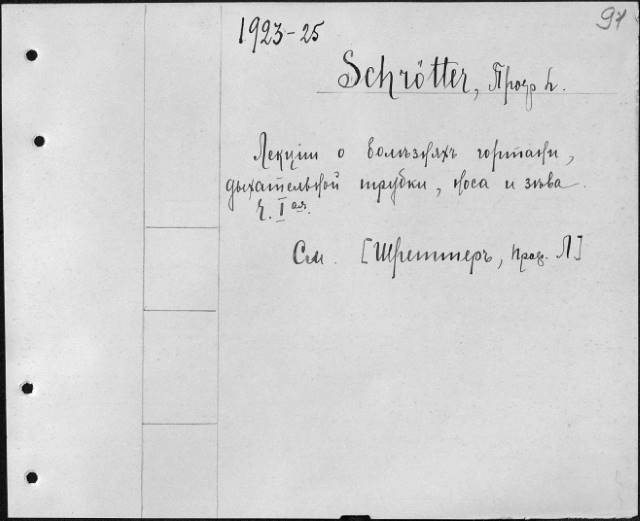 97
1923-25
Schrötter, Проф L.
Лекціи о болѣзняхъ гортани,
дыхательной трубки, носа и зѣва.
Ч. I ая.
См. [Шреттеръ, проф. Л]